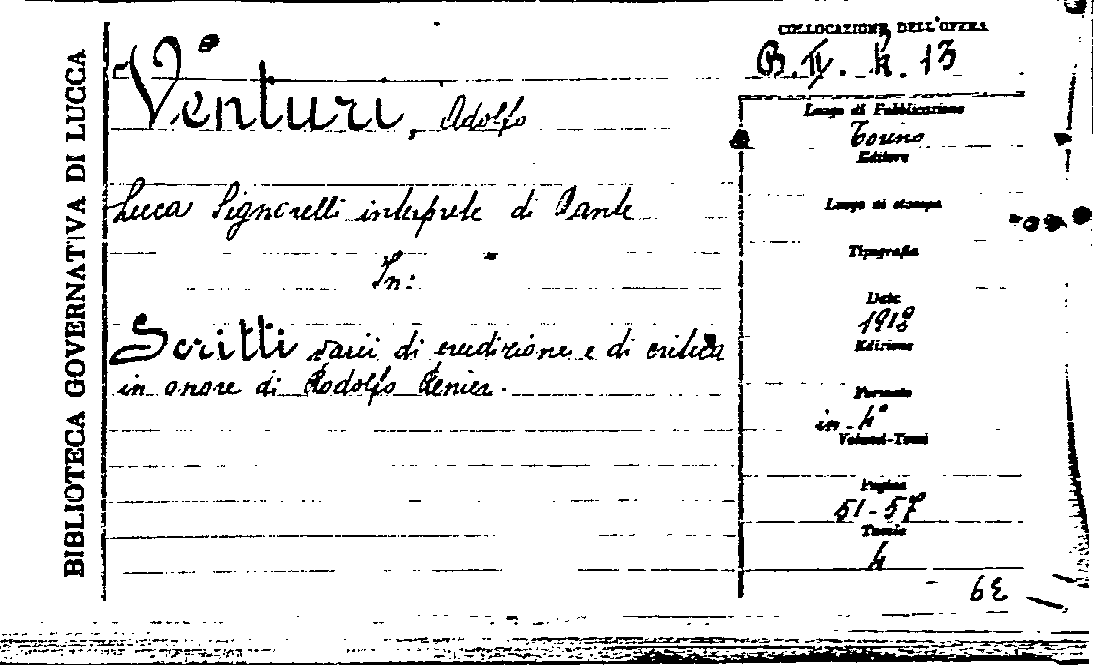 BIBLIOTECA GOVERNATIVA DI LUCCA
Venturi, Adolfo
Luca Signorelli interprete di Dante
In:
Scritti varii di erudizione e di critica
in onore di Rodolfo Renier.
COLLOCAZIONE DELL'OPERA
B. II. k. 13
Luogo di Pubblicazione
Torino
Editore
Luogo di stampa
Tipografia
Data
1912
Edizione
Formato
in-4°
Volumi-Tomi
Pagine
51-57
Tavole
4